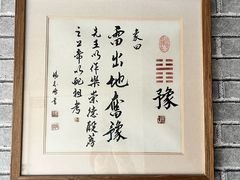 豫
象曰
雷出地奮豫
先王以作樂崇德殷薦
之上帝以配祖考